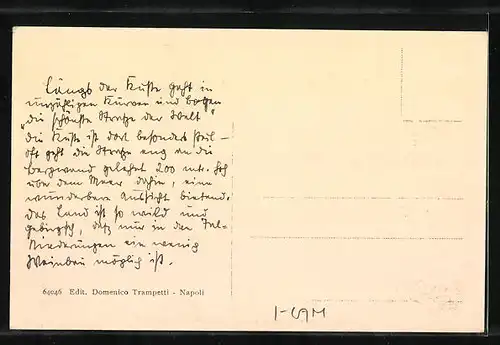 Längs der Küste geht in
unzähligen Kurven und Bogen
„die schönste Straße der Welt"
die Küste ist dort besonders steil –
oft geht die Straße eng an die
Bergwand gelehnt 200 mtr. hoch
über dem Meer dahin, eine
wunderbare Aussicht bietend.
Das Land ist so wild und
gebirgisch, daß nur in den Tal-
Niederungen ein wenig
Weinbau möglich ist.
64046 Edit. Domenico Trampetti - Napoli